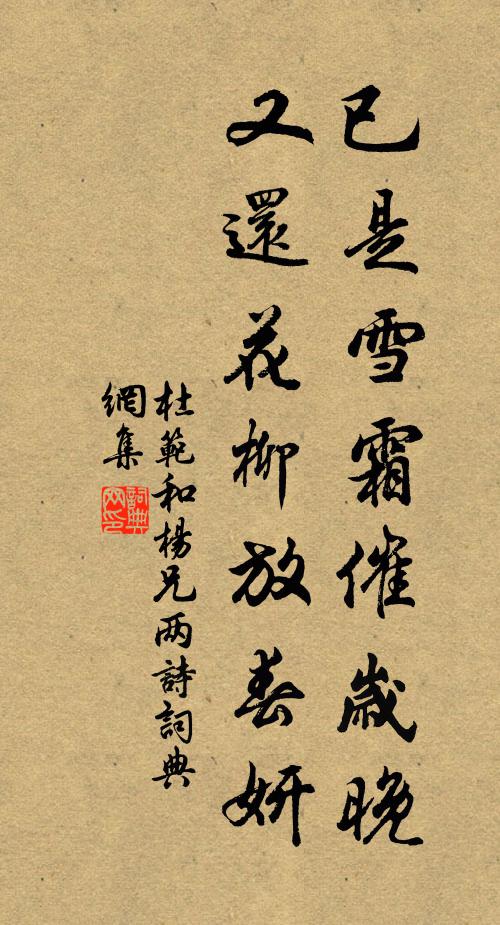 已是雪霜催歲晚
又還花柳放春妍
杜範和楊兄两詩詞典
網集
詞典网印